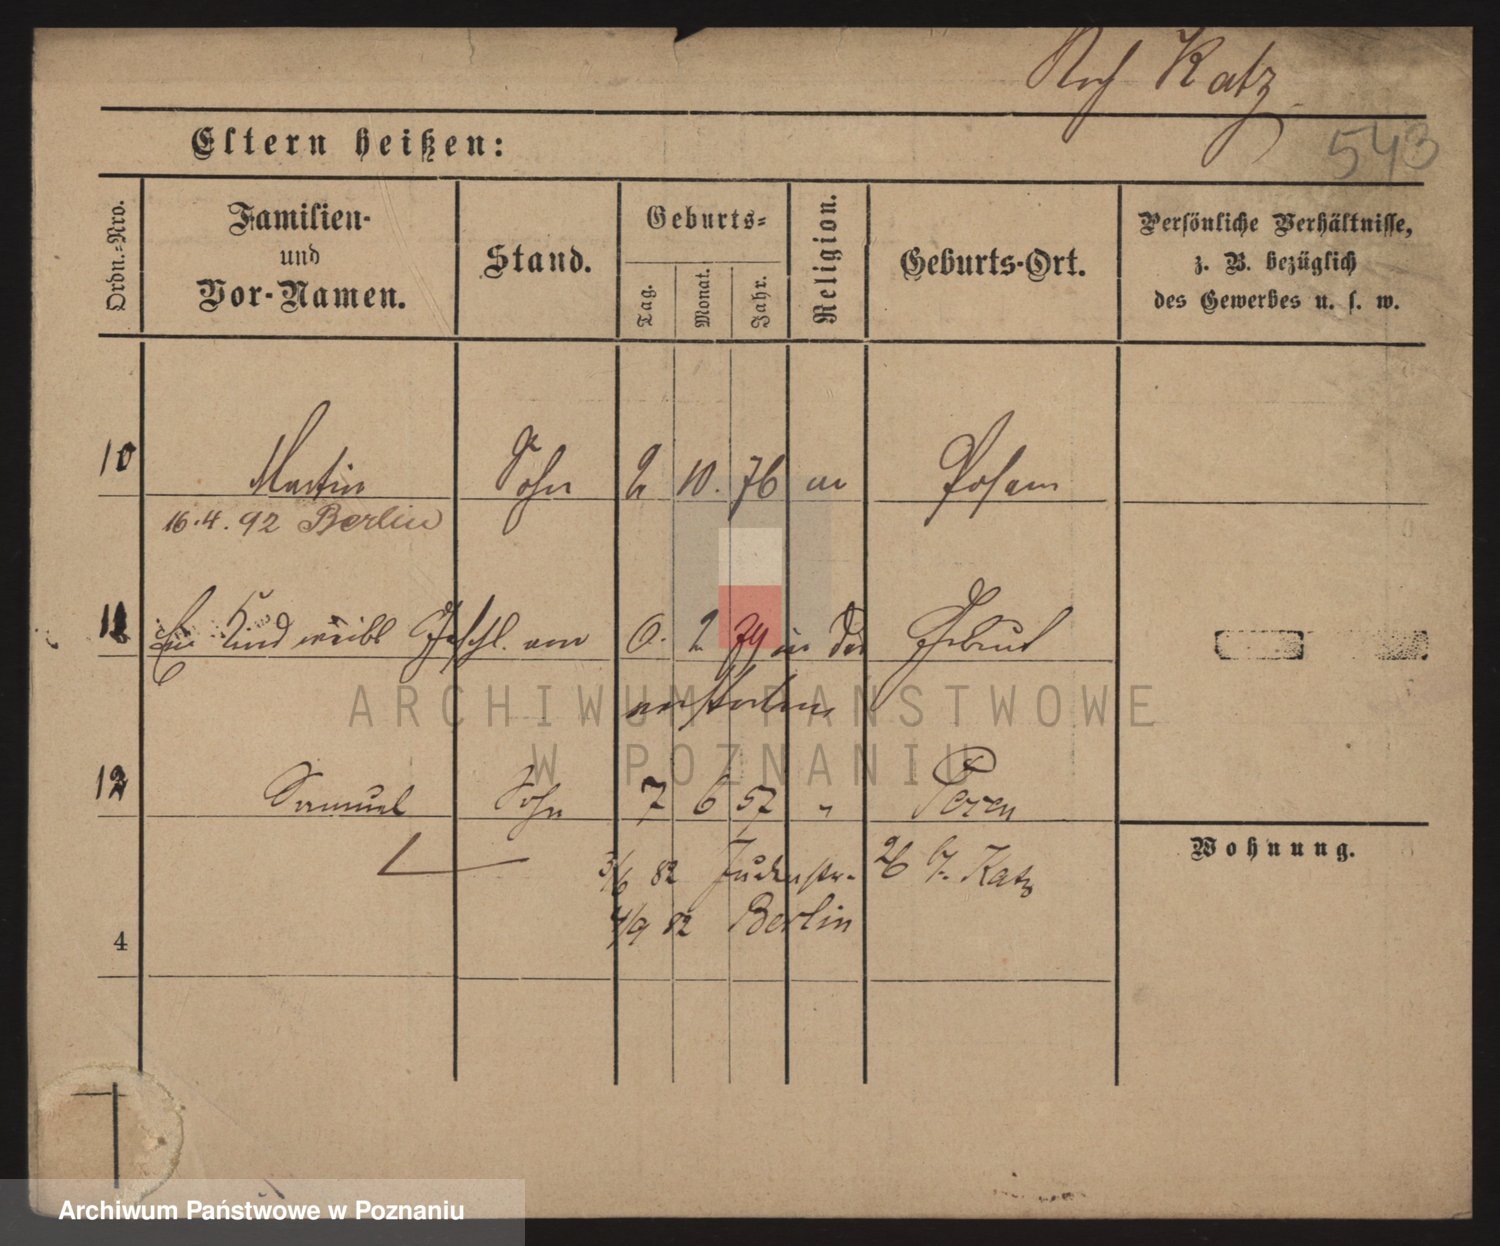 Katz
543
Eltern heißen:
Ordn.-Nro.
Familien-
und
Vor-Namen.
Stand.
Geburts-
Tag.
Monat.
Jahr.
Religion.
Geburts-Ort.
Persönliche Verhältnisse,
z. B. bezüglich
des Gewerbes u. s. w.
10 Martin Sohn 2 10. 76 Posen
16.4.92 Berlin
11 Ein Kind weibl. Geschl. am 6. 2 79 in der Geburt
verstorben
12 Samuel Sohn 7 6 57 " Posen
3/6 82 Judenstr. 26 b. Katz
4/9 82 Berlin
Wohnung.
4
ARCHIWUM PAŃSTWOWE
W POZNANIU
Archiwum Państwowe w Poznaniu